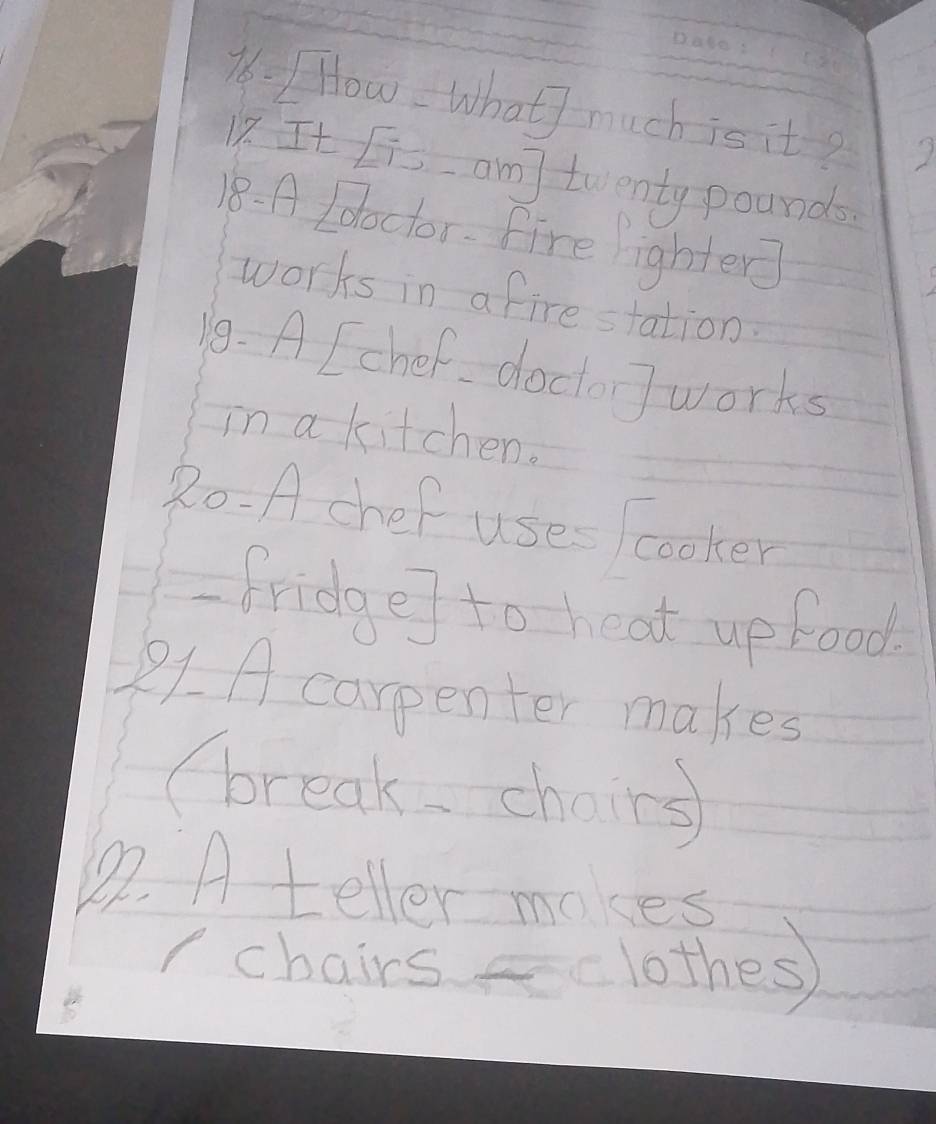 Date:
16-[How - What] much is it?
17. It [is - am] twenty pounds.
18-A [doctor - fire fighter]
works in a fire station.
19- A [chef - doctor] works
in a kitchen.
20-A chef uses [cooker
- fridge] to heat up food.
21- A carpenter makes
(break - chairs)
22. A teller makes
(chairs - clothes)